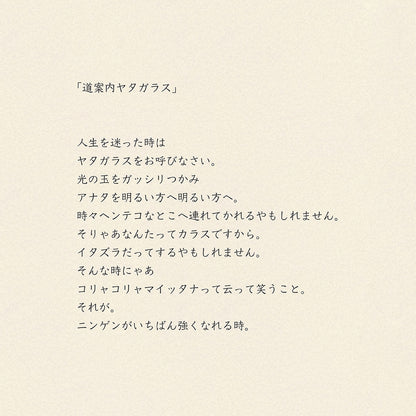 「道案内ヤタガラス」
人生を迷った時は
ヤタガラスをお呼びなさい。
光の玉をガッシリつかみ
アナタを明るい方へ明るい方へ。
時々ヘンテコなとこへ連れてかれるやもしれません。
そりゃあなんたってカラスですから。
イタズラだってするやもしれません。
そんな時にゃあ
コリャコリャマイッタナって云って笑うこと。
それが。
ニンゲンがいちばん強くなれる時。